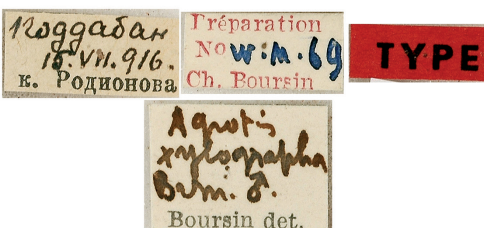 Коддабан
15.VII.916.
к. Родионова
Préparation
No W.M. 69
Ch. Boursin
TYPE
Agrotis
xylographa
Brsn. ♂.
Boursin det.